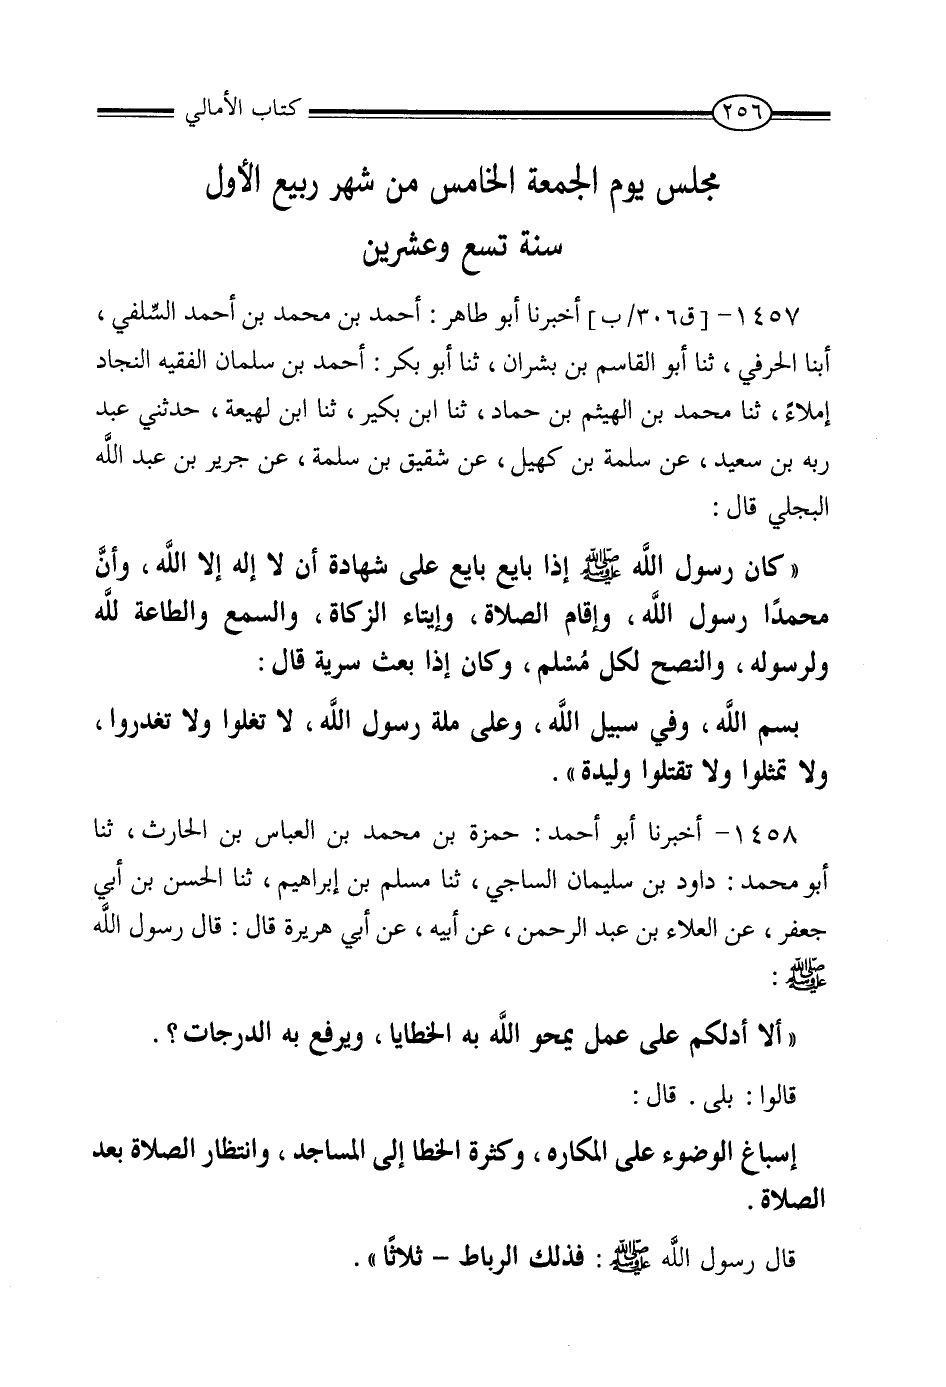 ٢٥٦ كتاب الأمالي
مجلس يوم الجمعة الخامس من شهر ربيع الأول
سنة تسع وعشرين
١٤٥٧- [ق٣٠٦/ب] أخبرنا أبو طاهر : أحمد بن محمد بن أحمد السِّلفي ،
أبنا الحرفي ، ثنا أبو القاسم بن بشران ، ثنا أبو بكر : أحمد بن سلمان الفقيه النجاد
إملاءً ، ثنا محمد بن الهيثم بن حماد ، ثنا ابن بكير ، ثنا ابن لهيعة ، حدثني عبد
ربه بن سعيد ، عن سلمة بن كهيل ، عن شقيق بن سلمة ، عن جرير بن عبد اللَّه
البجلي قال :
« كان رسول اللَّه ﷺ إذا بايع بايع على شهادة أن لا إله إلا اللَّه ، وأنَّ
محمدًا رسول اللَّه ، وإقام الصلاة ، وإيتاء الزكاة ، والسمع والطاعة للَّه
ولرسوله ، والنصح لكل مُسْلم ، وكان إذا بعث سرية قال :
بسم اللَّه ، وفي سبيل اللَّه ، وعلى ملة رسول اللَّه ، لا تغلوا ولا تغدروا ،
ولا تمثلوا ولا تقتلوا وليدة » .
١٤٥٨- أخبرنا أبو أحمد : حمزة بن محمد بن العباس بن الحارث ، ثنا
أبو محمد : داود بن سليمان الساجي ، ثنا مسلم بن إبراهيم ، ثنا الحسن بن أبي
جعفر ، عن العلاء بن عبد الرحمن ، عن أبيه ، عن أبي هريرة قال : قال رسول اللَّه
ﷺ :
« ألا أدلكم على عمل يمحو اللَّه به الخطايا ، ويرفع به الدرجات ؟ .
قالوا : بلى . قال :
إسباغ الوضوء على المكاره ، وكثرة الخطا إلى المساجد ، وانتظار الصلاة بعد
الصلاة .
قال رسول اللَّه ﷺ : فذلك الرباط – ثلاثًا » .